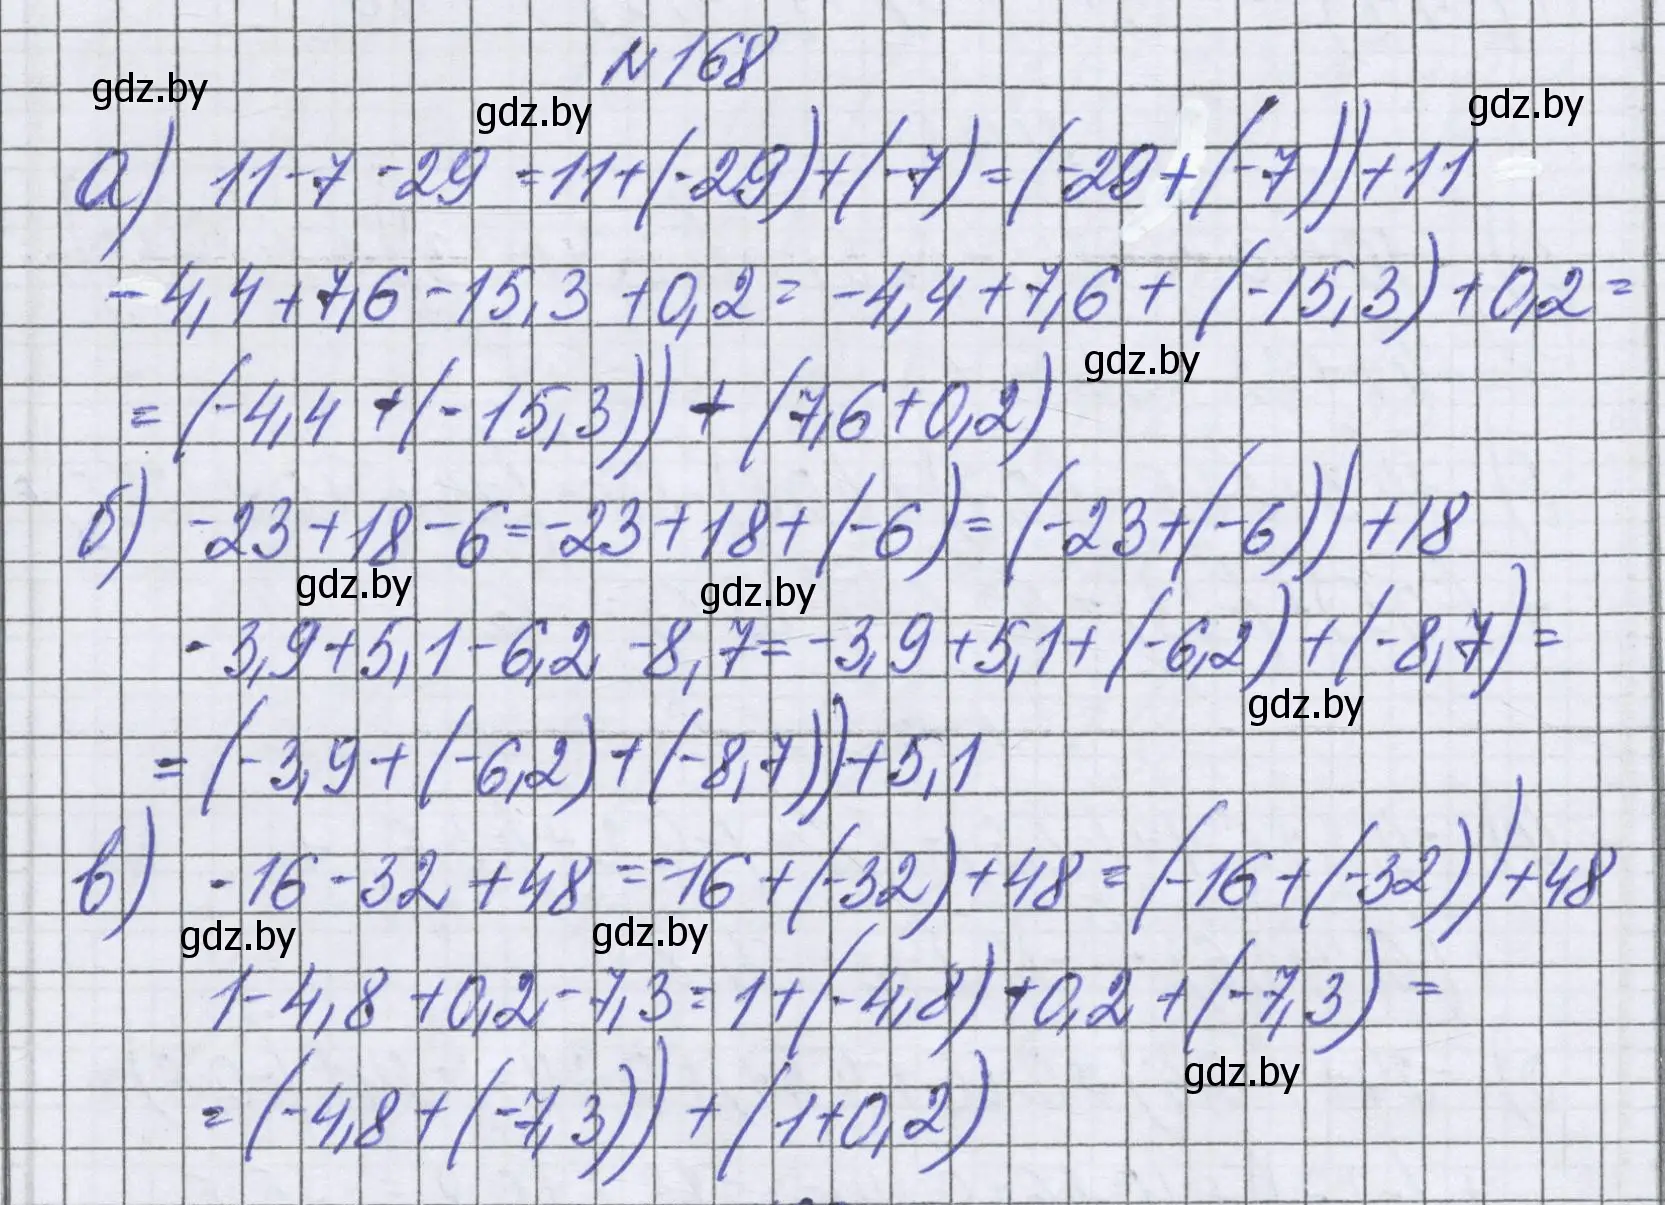 №168
gdz.by
gdz.by
gdz.by
а) 11-7-29=11+(-29)+(-7)=(-29+(-7))+11
-4,4+7,6-15,3+0,2=-4,4+7,6+(-15,3)+0,2=
gdz.by
=(-4,4+(-15,3))+(7,6+0,2)
б) -23+18-6=-23+18+(-6)=(-23+(-6))+18
gdz.by
gdz.by
-3,9+5,1-6,2-8,7=-3,9+5,1+(-6,2)+(-8,7)=
gdz.by
=(-3,9+(-6,2)+(-8,7))+5,1
в) -16-32+48=-16+(-32)+48=(-16+(-32))+48
gdz.by
gdz.by
1-4,8+0,2-7,3=1+(-4,8)+0,2+(-7,3)=
gdz.by
=(-4,8+(-7,3))+(1+0,2)